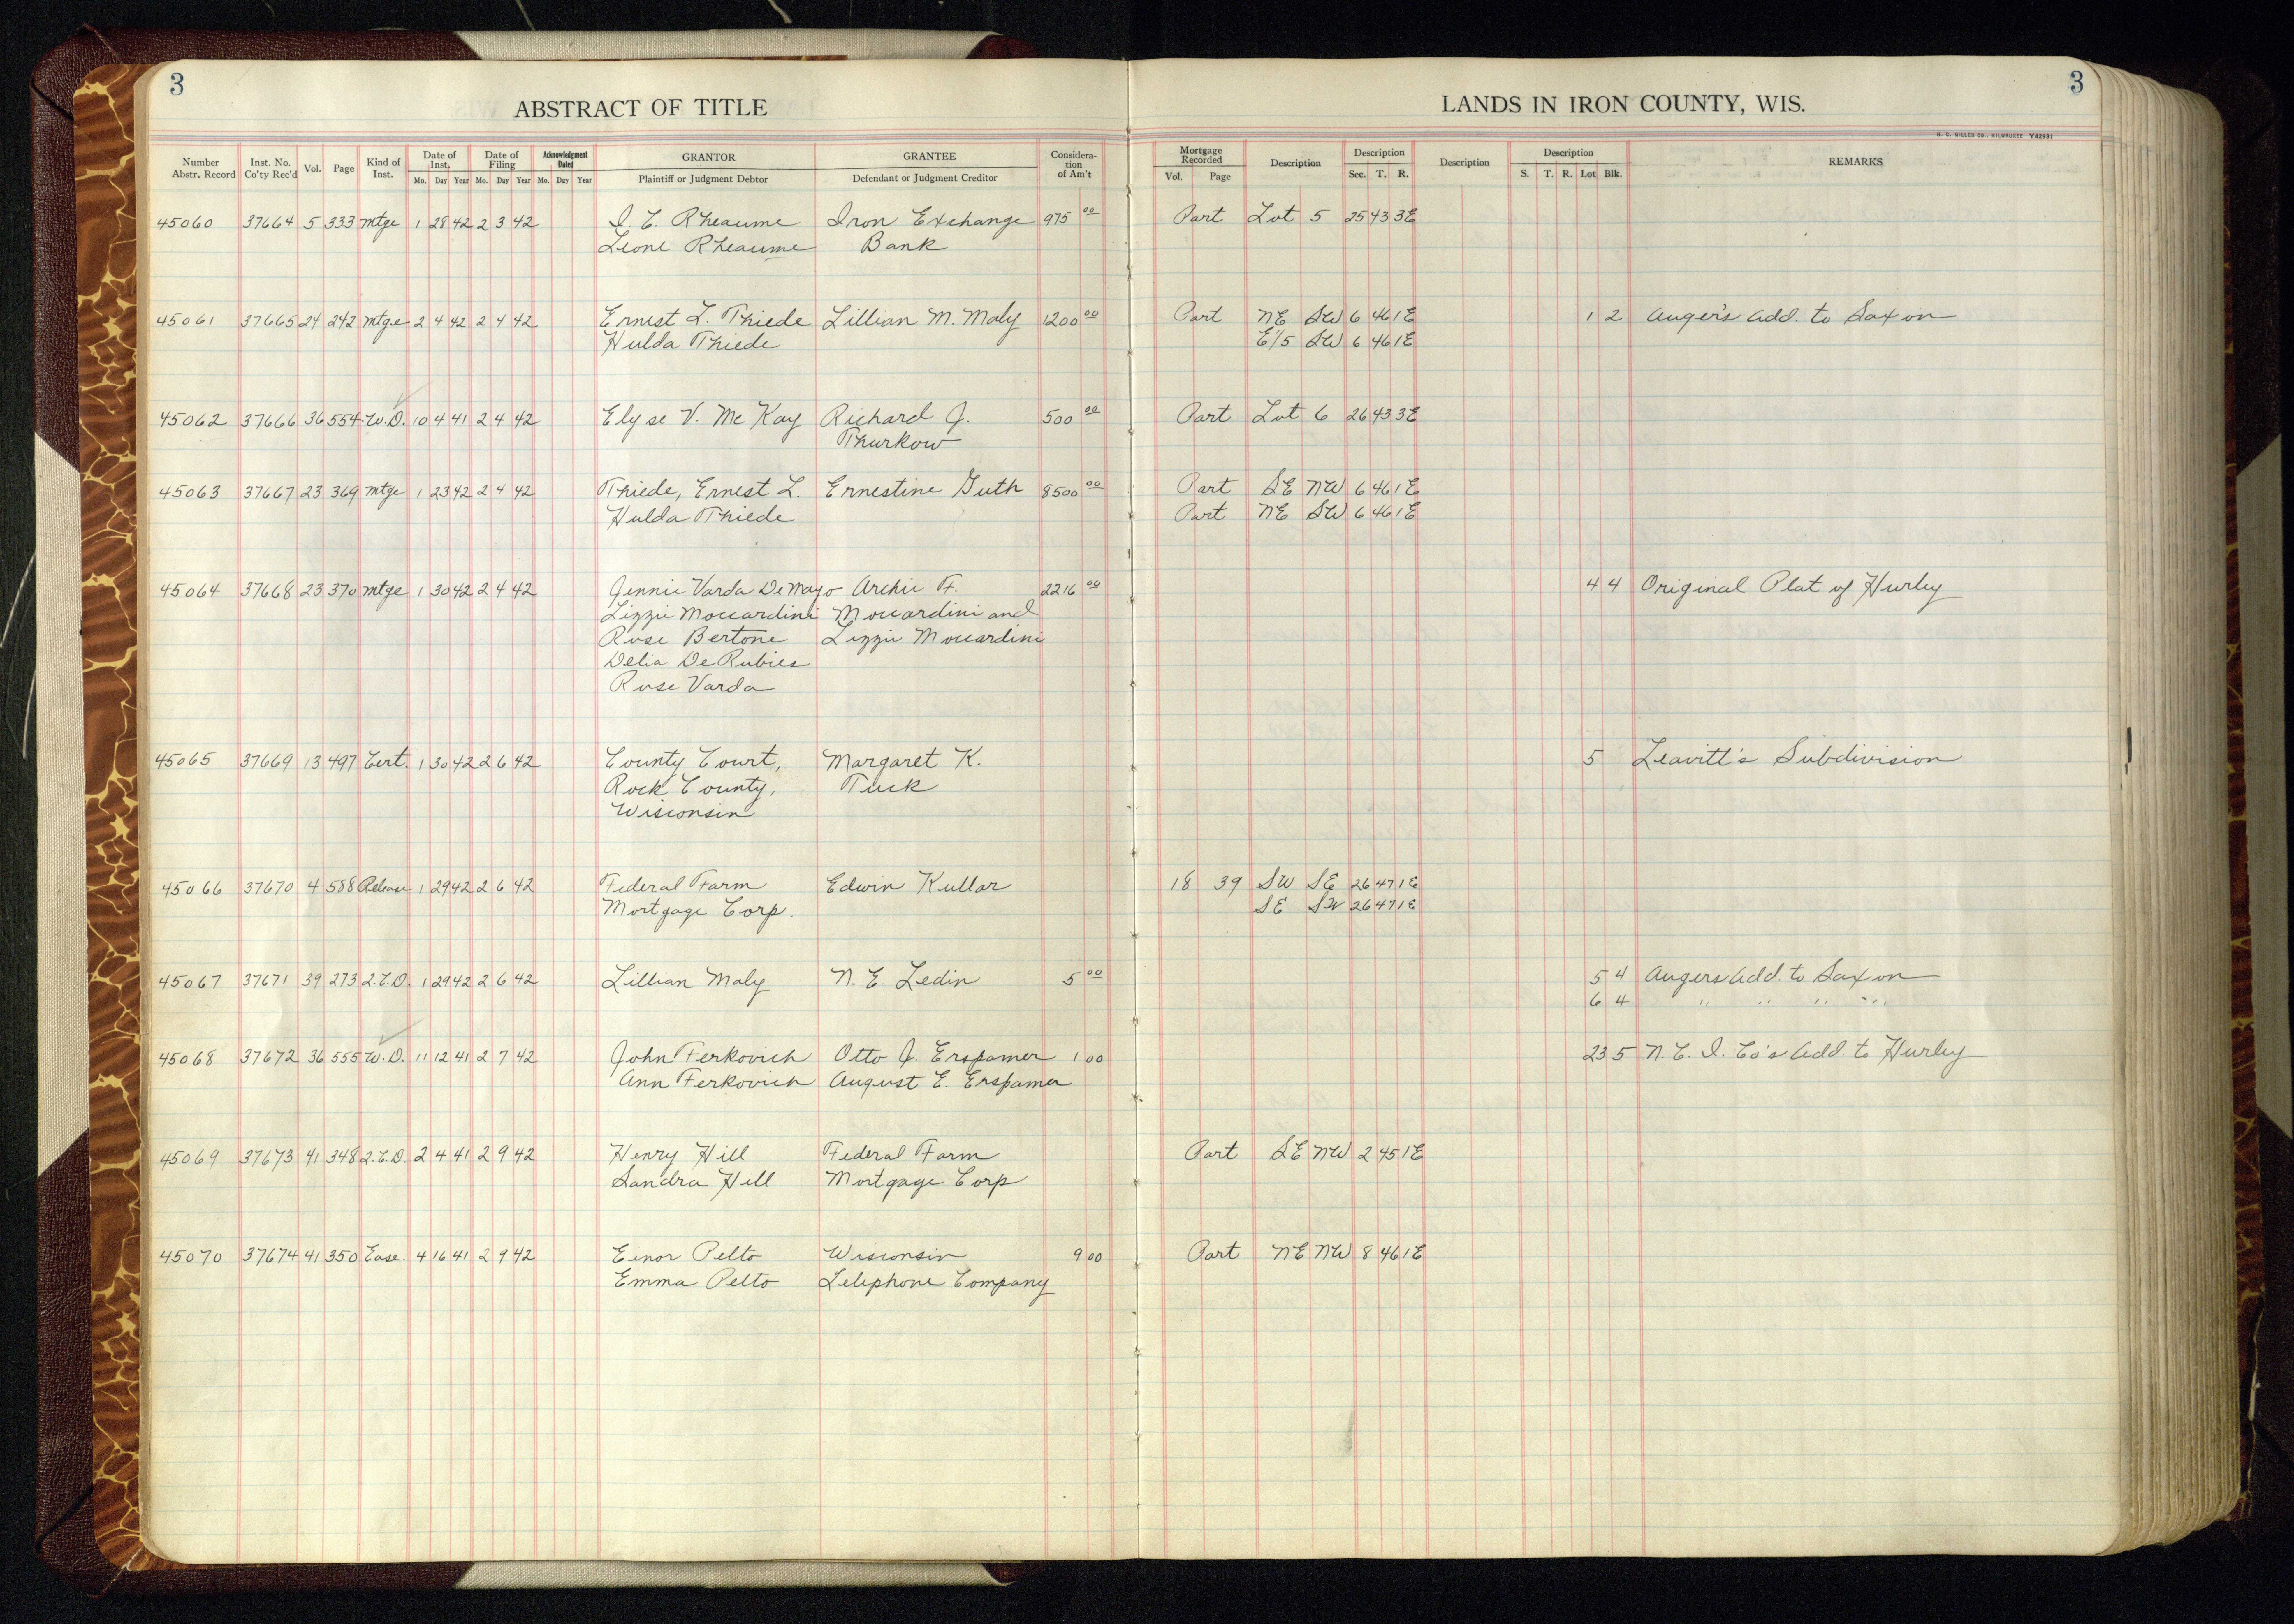 3
3
ABSTRACT OF TITLE
LANDS IN IRON COUNTY, WIS.
H. C. MILLER CO., MILWAUKEE Y42931
Number Abstr. Record Inst. No. Co'ty Rec'd Vol. Page Kind of Inst. Date of Inst. Mo. Day Year Date of Filing Mo. Day Year Acknowledgment Dated Mo. Day Year GRANTOR Plaintiff or Judgment Debtor GRANTEE Defendant or Judgment Creditor Consideration of Am't Mortgage Recorded Vol. Page Description Description Sec. T. R. Description Description S. T. R. Lot Blk. REMARKS
45060 37664 5 333 Mtge 1 28 42 2 3 42 I. E. Rheaume Iron Exchange 975 00 Part Lot 5 25 43 3E
Leone Rheaume Bank
45061 37665 24 242 Mtge 2 4 42 2 4 42 Ernest L. Thiede Lillian M. Maly 1200 00 Part NE SW 6 46 1E 1 2 Auger's Add. to Saxon
Hulda Thiede E 1/5 SW 6 46 1E
45062 37666 36 554 W.D. 10 4 41 2 4 42 Elyse V. McKay Richard J. 500 00 Part Lot 6 26 43 3E
Thurkow
45063 37667 23 369 Mtge 1 23 42 2 4 42 Thiede, Ernest L. Ernestine Guth 8500 00 Part SE NW 6 46 1E
Hulda Thiede Part NE SW 6 46 1E
45064 37668 23 370 Mtge 1 30 42 2 4 42 Jennie Varda DeMayo Archie F. 2216 00 4 4 Original Plat of Hurley
Lizzie Moccardini Moccardini and
Rose Bertone Lizzie Moccardini
Delia DeRubies
Rose Varda
45065 37669 13 497 Cert. 1 30 42 2 6 42 County Court, Margaret K. 5 Leavitt's Subdivision
Rock County, Tuck
Wisconsin
45066 37670 4 588 Release 1 29 42 2 6 42 Federal Farm Edwin Kullar 18 39 SW SE 26 47 1E
Mortgage Corp. SE SW 26 47 1E
45067 37671 39 273 Q.C.D. 1 29 42 2 6 42 Lillian Maly N. E. Ledin 5 00 5 4 Augers Add. to Saxon
6 4 " " " "
45068 37672 36 555 W.D. 11 12 41 2 7 42 John Ferkovich Otto J. Erspamer 1 00 23 5 N. C. I. Co's Add. to Hurley
Ann Ferkovich August E. Erspamer
45069 37673 41 348 Q.C.D. 2 4 41 2 9 42 Henry Hill Federal Farm Part SE NW 2 45 1E
Sandra Hill Mortgage Corp
45070 37674 41 350 Ease. 4 16 41 2 9 42 Einor Pelto Wisconsin 9 00 Part NE NW 8 46 1E
Emma Pelto Telephone Company